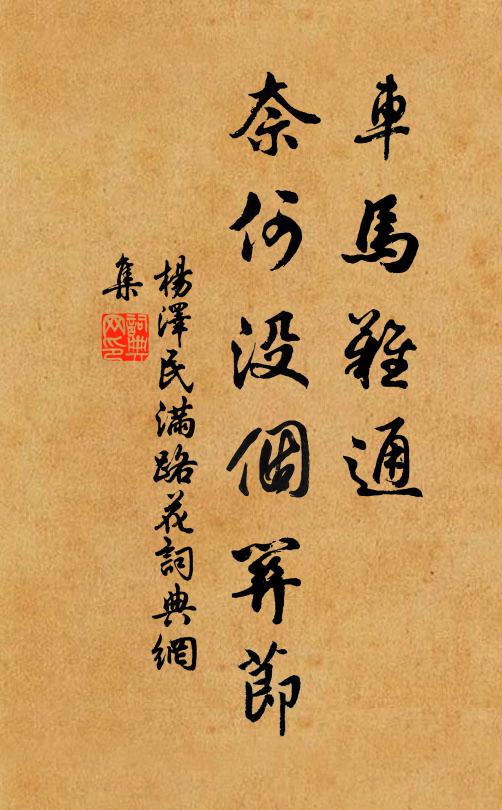 車馬難通
奈何没個関節
楊澤民滿路花詞典網
集
詞典网印